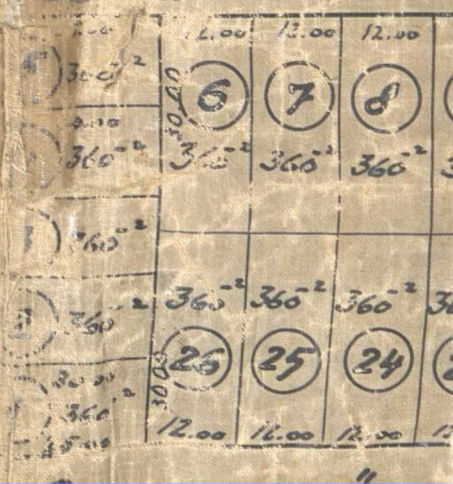 12.00 12.00 12.00
360-2
30.00
6 7 8
360-2 360-2 360-2 360-2
360-2
360-2 360-2 360-2
360-2
30.00
26 25 24
30.00
360-2
12.00 12.00 12.00